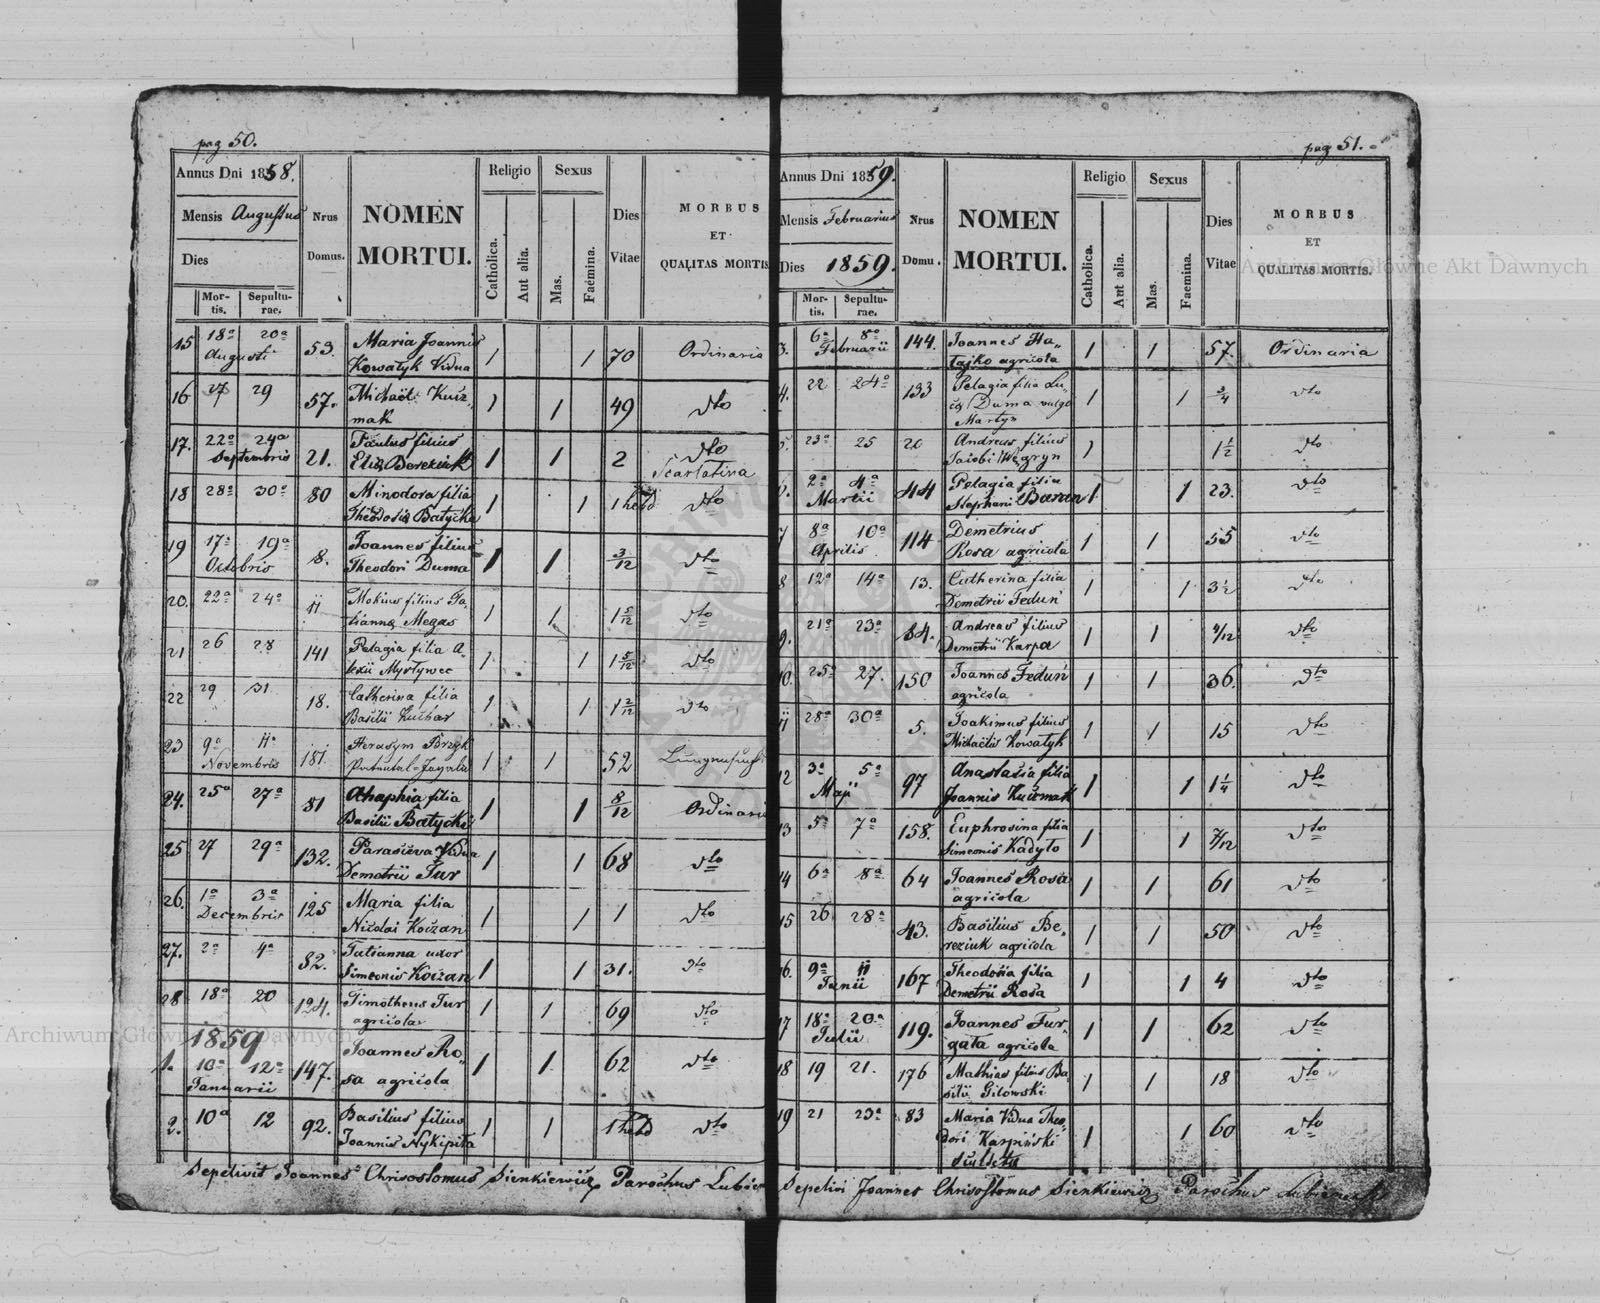 pag 50.
Annus Dni 1858.
Mensis Augustus
Dies
Mortis. Sepulturae.
Nrus Domus.
NOMEN MORTUI.
Religio
Catholica. Aut alia.
Sexus
Mas. Faemina.
Dies Vitae
MORBUS ET QUALITAS MORTIS
15 18a 20a Augusti 53. Maria Joannis
Kowałyk Vidua 1 1 70 Ordinaria
16 27 29 57. Michaël Kuźmak 1 1 49 dto
17. 22a 24a Septembris 21. Paulus filius
Eliæ Bereziuk 1 1 2 dto Scarlatina
18 28a 30a 80 Minodora filia
Theodosii Batycki 1 1 1 hebd dto
19 17a 19a Octobris 8. Joannes filius
Theodori Duma 1 1 3/12 dto
20. 22a 24a 11 Mokius filius Ta-
tiannæ Megas 1 1 1 5/12 dto
21 26 28 141 Pelagia filia A-
lexii Myrtywec 1 1 1 5/12 dto
22 29 31 18. Catherina filia
Basilii Kucbar 1 1 1 2/12 dto
23 9a 11a Novembris 181 Herasym Brzyk
1 1 52
24. 25a 27a 81 Ahaphia filia
Basilii Batycki 1 1 8/12 Ordinaria
25 27 29a 132. Parasceva Vidua
Demetrii Tur 1 1 68 dto
26. 1a 3a Decembris 125 Maria filia
Nicolai Koczan 1 1 1 dto
27. 2a 4a 82. Tatianna uxor
Simeonis Koczan 1 1 31. dto
28 18a 20 124. Timotheus Tur
agricola 1 1 69 dto
1859
1. 10a 12a Januarii 147. Joannes Ro-
sa agricola 1 1 62 dto
2. 10a 12 92. Basilius filius
Joannis Nykipiła 1 1 1 hebd dto
Sepelivit Joannes Chrisostomus Sienkiewicz Parochus
pag 51.
Annus Dni 1859.
Mensis Februarius
Dies 1859.
Mortis. Sepulturae.
Nrus Domu.
NOMEN MORTUI.
Religio
Catholica. Aut alia.
Sexus
Mas. Faemina.
Dies Vitae
MORBUS ET QUALITAS MORTIS.
3. 6a 8a Februarii 144. Joannes Ha-
tajko agricola 1 1 57. Ordinaria
4. 22 24a 133 Pelagia filia Lu-
cæ Duma vulgo
Martyn 1 1 3/4 dto
5. 23a 25 20 Andreas filius
Jacobi Węgryn 1 1 1/2 dto
6. 2a 4a Martii 44 Pelagia filia
Stephani Baran 1 1 23. dto
7 8a 10a Aprilis 114 Demetrius
Rosa agricola 1 1 55 dto
8 12a 14a 13. Catherina filia
Demetrii Feduń 1 1 3 1/2 dto
9. 21a 23a 84. Andreas filius
Demetrii Karpa 1 1 4/12 dto
10 25a 27. 150 Joannes Feduń
agricola 1 1 36. dto
11 28a 30a 5. Joakimus filius
Michaëlis Kowałyk 1 1 15 dto
12 3a 5a Maji 97 Anastasia filia
Joannis Kuczmak 1 1 1 1/4 dto
13 5a 7a 158. Euphrosina filia
Simeonis Kadyło 1 1 7/12 dto
14 6a 8a 64 Joannes Rosa
agricola 1 1 61 dto
15 26 28a 43. Basilius Be-
reziuk agricola 1 1 50 dto
16. 9a 11 Junii 167 Theodosia filia
Demetrii Rosa 1 1 4 dto
17 18a 20a Julii 119. Joannes Fur-
gała agricola 1 1 62 dto
18 19 21. 176 Mathias filius Ba-
silii Gilowski 1 1 18 dto
19 21 23a 83 Maria Vidua Theo-
dori Karpiński
1 1 60 dto
Sepelivi Joannes Chrisostomus Sienkiewicz Parochus
Archiwum Główne Akt Dawnych
Archiwum Główne Akt Dawnych